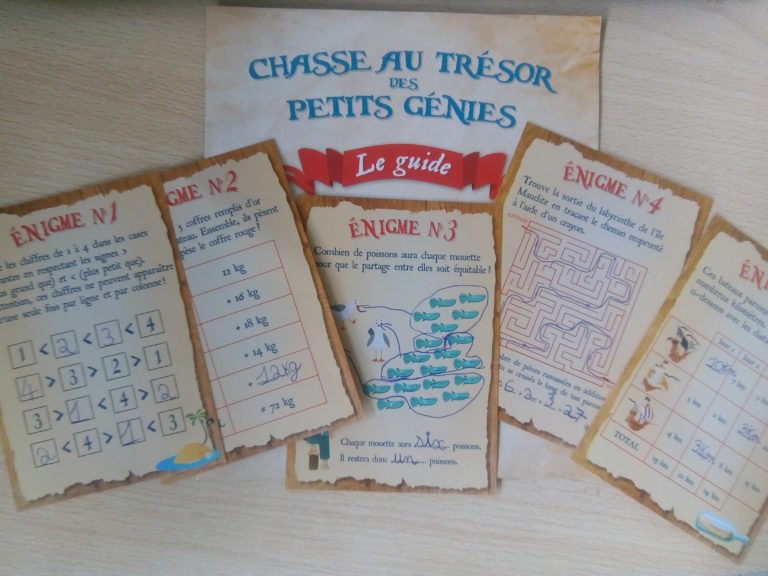 CHASSE AU TRÉSOR
DES
PETITS GÉNIES
Le guide
ÉNIGME N°1
les chiffres de 1 à 4 dans les cases
en respectant les signes >
grand que) et < (plus petit que).
ces chiffres ne peuvent apparaître
une seule fois par ligne et par colonne !
1 < 2 < 3 < 4
4 > 3 > 2 > 1
3 > 1 < 4 > 2
2 < 4 > 1 < 3
N°2
5 coffres remplis d'or
Ensemble, ils pèsent
le coffre rouge ?
12 kg
+ 16 kg
+ 18 kg
+ 14 kg
+ 12kg
= 72 kg
ÉNIGME N°3
Combien de poissons aura chaque mouette
pour que le partage entre elles soit équitable ?
Chaque mouette aura six poissons.
Il restera donc un poissons.
ÉNIGME N°4
Trouve la sortie du labyrinthe de l'île
Maudite en traçant le chemin emprunté
à l'aide d'un crayon.
de pièces ramassées en addition
croisées le long de ton
= 27
Ces bateaux
nombreux kilomètres.
ci-dessous avec les
Jour 1
Jour 2
TOTAL
19 km
22 km
24 km